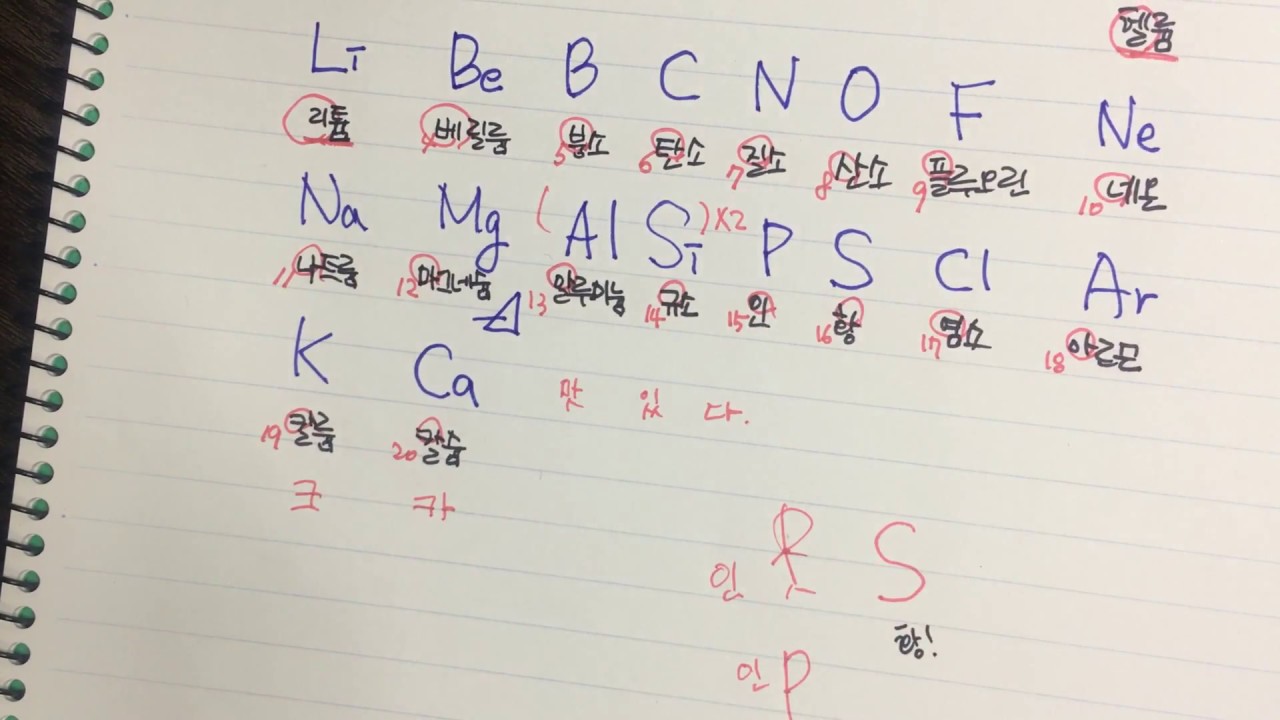 헬륨
Li Be B C N O F Ne
리튬 베릴륨 5 붕소 6 탄소 7 질소 8 산소 9 플루오린 10 네온
Na Mg (Al Si)x2 P S Cl Ar
11 나트륨 12 마그네슘 13 알루미늄 14 규소 15 인 16 황 17 염소 18 아르곤
K Ca 맛 있 다.
19 칼륨 20 칼슘
크 카
인 P S
황!
인 P